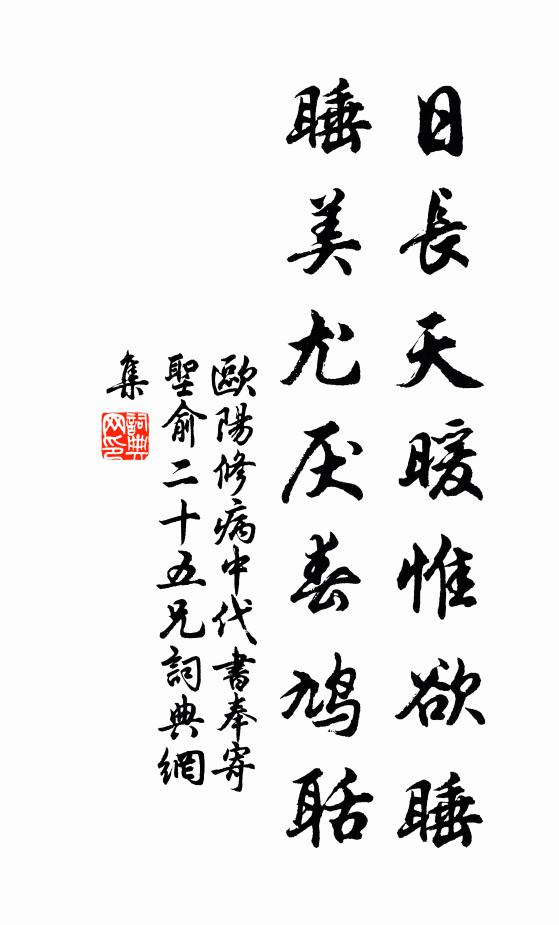 日長天暖惟欲睡
睡美尤厌春鳩聒
歐陽修病中代書奉寄
聖俞二十五兄詞典網
集
詞典网印